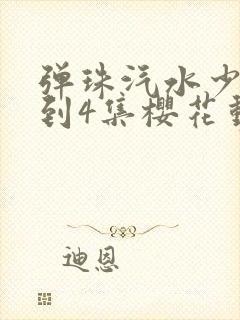 弹珠汽水少
到4集樱花動
迪恩